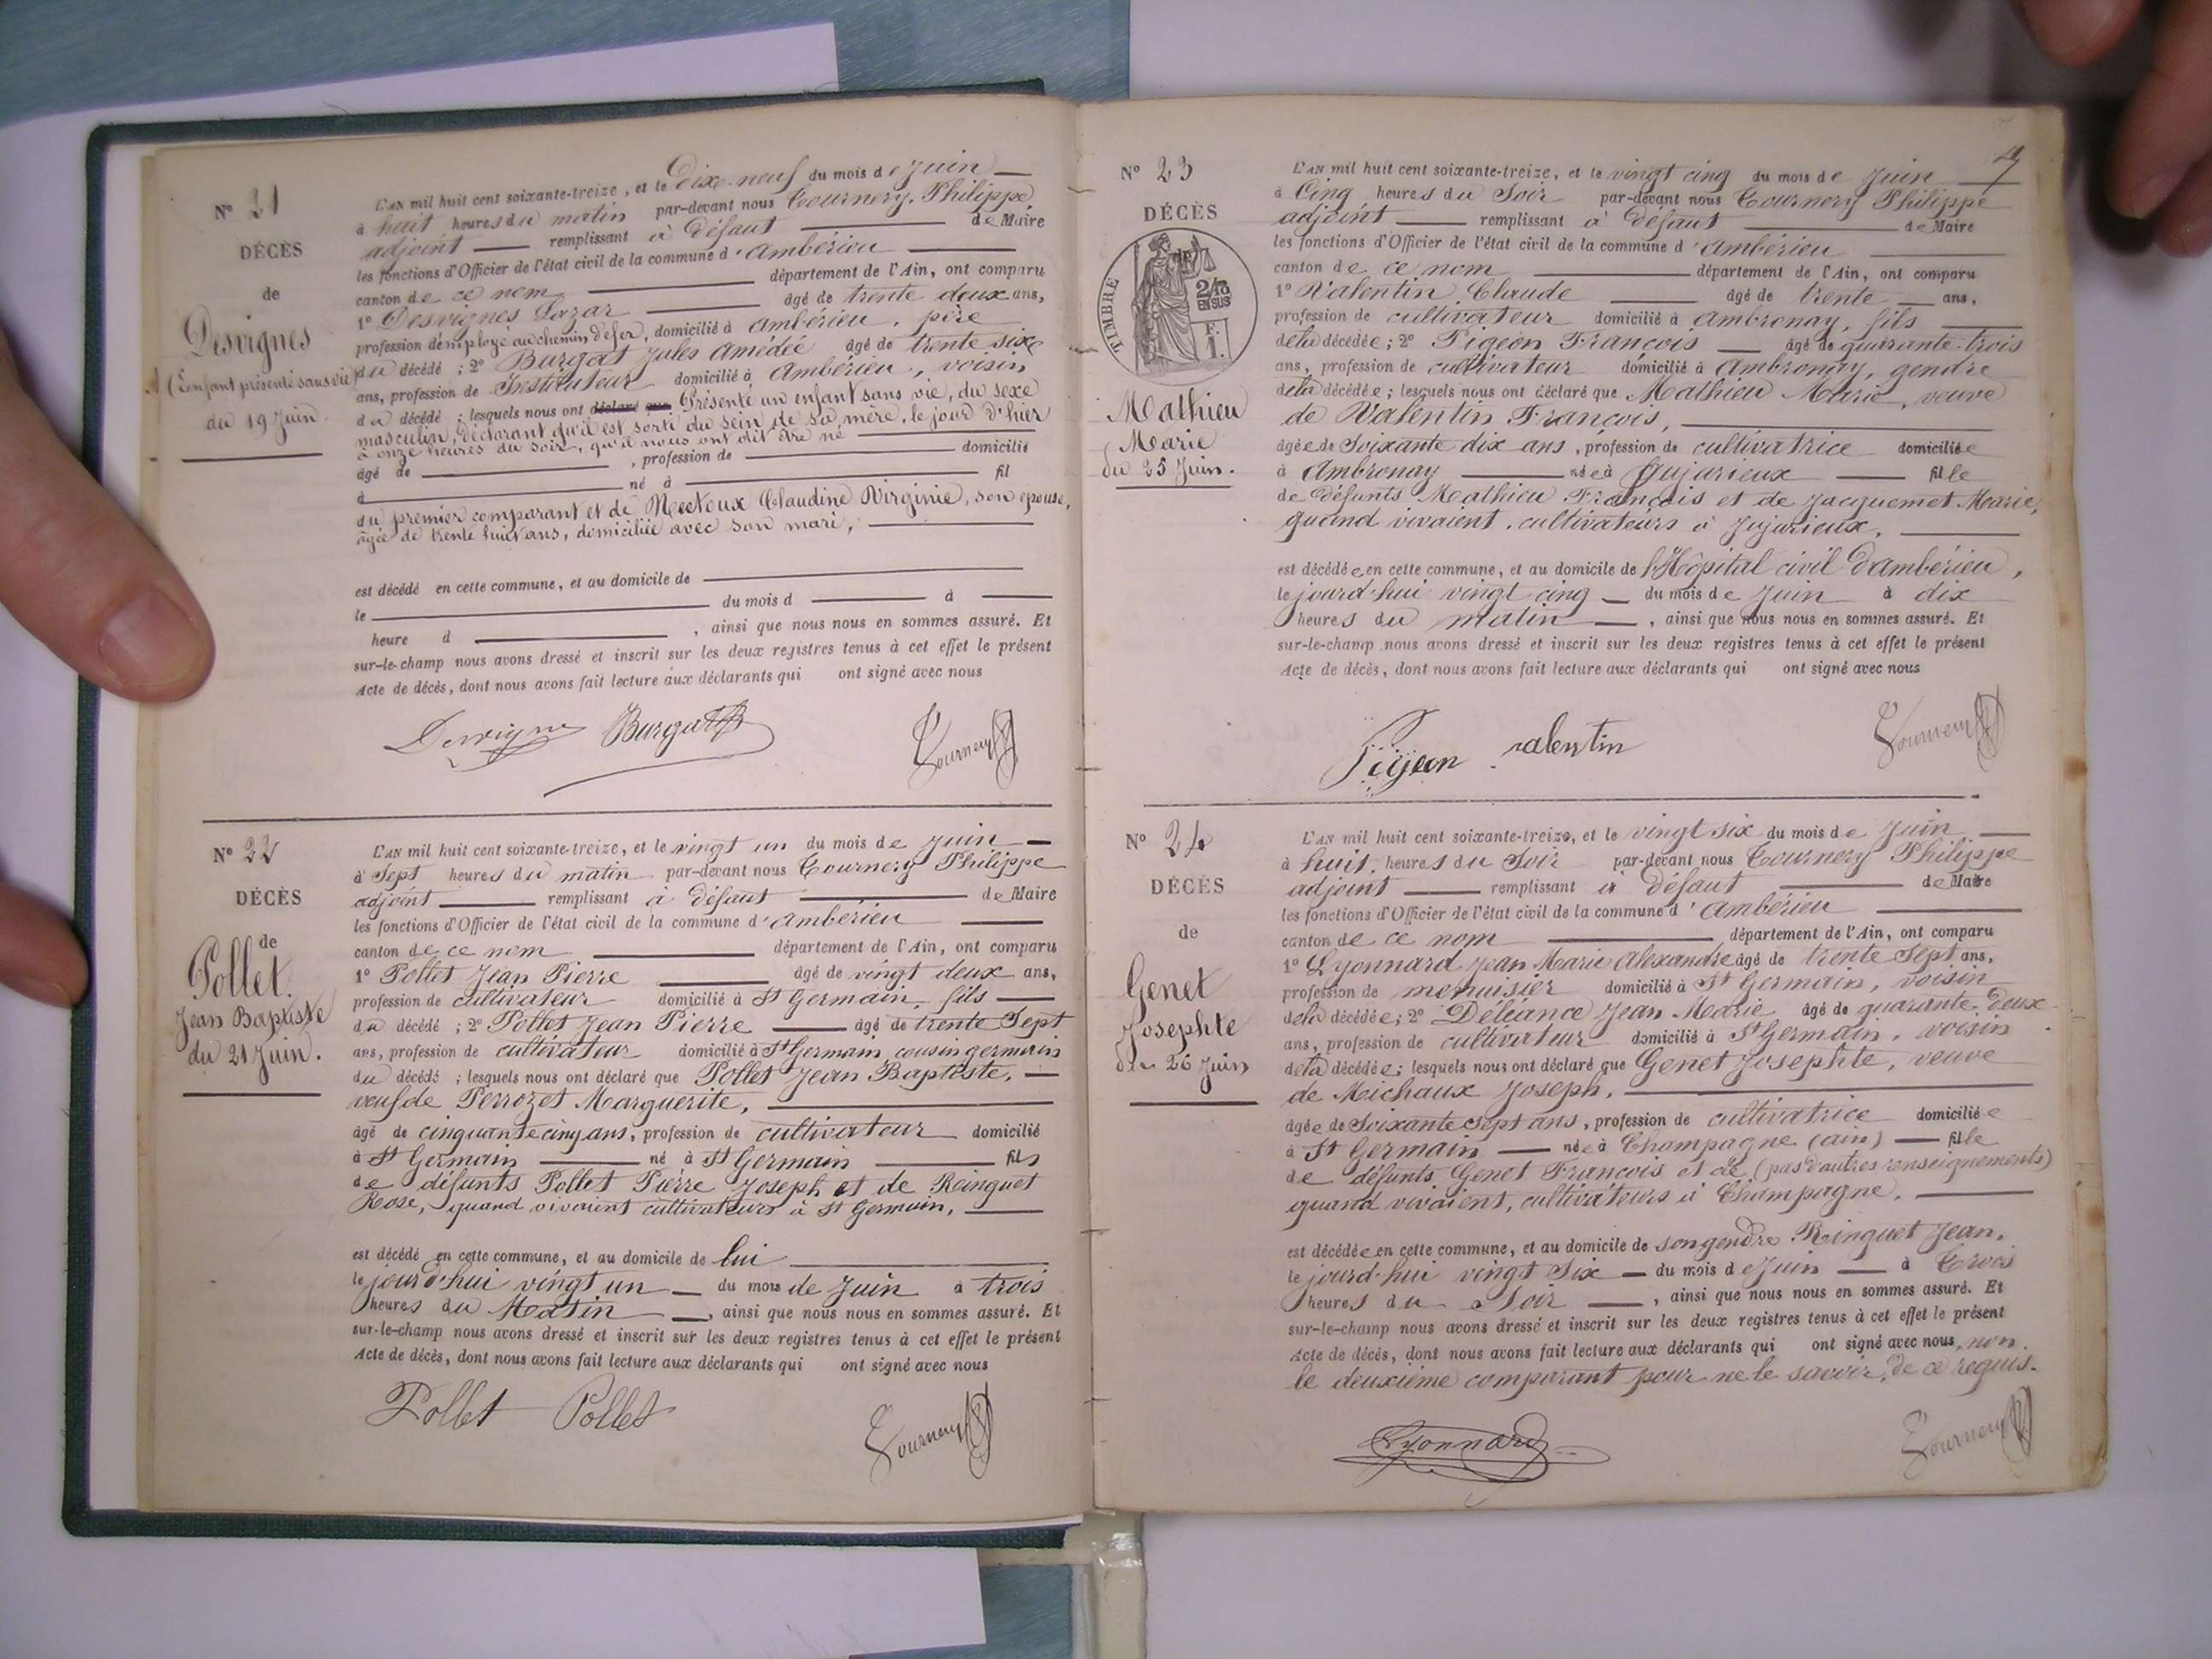 N° 21
DÉCÈS
de
Desvignes
(Enfant présenté sans vie)
du 19 Juin.
L'AN mil huit cent soixante-treize, et le Dixe-neuf du mois de Juin
à huit heures du matin par-devant nous Tournery, Philippe
adjoint remplissant à Défaut de Maire
les fonctions d'Officier de l'état civil de la commune d'Ambérieu
canton de ce nom département de l'Ain, ont comparu
1° Desvignes Lazar âgé de trente deux ans,
profession d'employé au chemin de fer, domicilié à Ambérieu, père
du décédé ; 2° Burgat Jules Amédée âgé de trente six
ans, profession de Instituteur domicilié à Ambérieu, voisin
du décédé ; lesquels nous ont déclaré que Présenté un enfant sans vie, du sexe
masculin, déclarant qu'il est sorti du sein de sa mère, le jour d'hier
à onze heures du soir, qu'il nous ont dit être né
âgé de , profession de domicilié
à né à fil
du premier comparant et de Mectoux Claudine Virginie, son épouse,
âgée de trente huit ans, domiciliée avec son mari,
est décédé en cette commune, et au domicile de
le du mois d à
heure d , ainsi que nous nous en sommes assuré. Et
sur-le-champ nous avons dressé et inscrit sur les deux registres tenus à cet effet le présent
Acte de décès, dont nous avons fait lecture aux déclarants qui ont signé avec nous
Desvignes Burgat Tournery
N° 22
DÉCÈS
de
Pollet
Jean Baptiste
du 21 Juin.
L'AN mil huit cent soixante-treize, et le vingt un du mois de Juin
à Sept heures du matin par-devant nous Tournery Philippe
adjoint remplissant à Défaut de Maire
les fonctions d'Officier de l'état civil de la commune d'Ambérieu
canton de ce nom département de l'Ain, ont comparu
1° Pollet Jean Pierre âgé de vingt deux ans,
profession de cultivateur domicilié à St Germain, fils
du décédé ; 2° Pollet Jean Pierre âgé de trente Sept
ans, profession de cultivateur domicilié à St Germain, cousin germain
du décédé ; lesquels nous ont déclaré que Pollet Jean Baptiste,
veuf de Perrozet Marguerite,
âgé de cinquante cinq ans, profession de cultivateur domicilié
à St Germain né à St Germain fils
de défunts Pollet Pierre Joseph et de Ringuet
Rose, quand vivaient cultivateurs à St Germain,
est décédé en cette commune, et au domicile de lui
le jourd'hui vingt un du mois de Juin à trois
heures du Matin , ainsi que nous nous en sommes assuré. Et
sur-le-champ nous avons dressé et inscrit sur les deux registres tenus à cet effet le présent
Acte de décès, dont nous avons fait lecture aux déclarants qui ont signé avec nous
Pollet Pollet Tournery
N° 23
DÉCÈS
de
TIMBRE
2/10
EN SUS
F.
1.
Mathieu
Marie
du 25 Juin.
L'AN mil huit cent soixante-treize, et le vingt cinq du mois de Juin
à Cinq heures du Soir par-devant nous Tournery Philippe
adjoint remplissant à Défaut de Maire
les fonctions d'Officier de l'état civil de la commune d'Ambérieu
canton de ce nom département de l'Ain, ont comparu
1° Valentin Claude âgé de trente ans,
profession de cultivateur domicilié à Ambronay, fils
de la décédée ; 2° Pigeon François âgé de quarante-trois
ans, profession de cultivateur domicilié à Ambronay, gendre
de la décédée ; lesquels nous ont déclaré que Mathieu Marie, veuve
de Valentin François,
âgée de Soixante dix ans, profession de cultivatrice domiciliée
à Ambronay née à Jujurieux fille
de défunts Mathieu François et de Jacquemet Marie,
quand vivaient, cultivateurs à Jujurieux,
est décédée en cette commune, et au domicile de l'Hôpital civil d'Ambérieu,
le jourd'hui vingt cinq du mois de Juin à dix
heures du matin , ainsi que nous nous en sommes assuré. Et
sur-le-champ nous avons dressé et inscrit sur les deux registres tenus à cet effet le présent
Acte de décès, dont nous avons fait lecture aux déclarants qui ont signé avec nous
Pigeon valentin Tournery
N° 24
DÉCÈS
de
Genet
Josephte
du 26 Juin
L'AN mil huit cent soixante-treize, et le vingt six du mois de Juin
à huit heures du Soir par-devant nous Tournery Philippe
adjoint remplissant à Défaut de Maire
les fonctions d'Officier de l'état civil de la commune d'Ambérieu
canton de ce nom département de l'Ain, ont comparu
1° Lyonnard Jean Marie Alexandre âgé de trente Sept ans,
profession de menuisier domicilié à St Germain, voisin
de la décédée ; 2° Déléance Jean Marie âgé de quarante-deux
ans, profession de cultivateur domicilié à St Germain, voisin
de la décédée ; lesquels nous ont déclaré que Genet Josephte, veuve
de Michaux Joseph,
âgée de Soixante Sept ans, profession de cultivatrice domiciliée
à St Germain née à Champagne (ain) fille
de défunts Genet François et de (pas d'autres renseignements)
quand vivaient, cultivateurs à Champagne,
est décédée en cette commune, et au domicile de son gendre Ringuet Jean,
le jourd'hui vingt Six du mois de Juin à Trois
heures du Soir , ainsi que nous nous en sommes assuré. Et
sur-le-champ nous avons dressé et inscrit sur les deux registres tenus à cet effet le présent
Acte de décès, dont nous avons fait lecture aux déclarants qui ont signé avec nous, non
le deuxième comparant pour ne le savoir, de ce requis.
Lyonnard Tournery